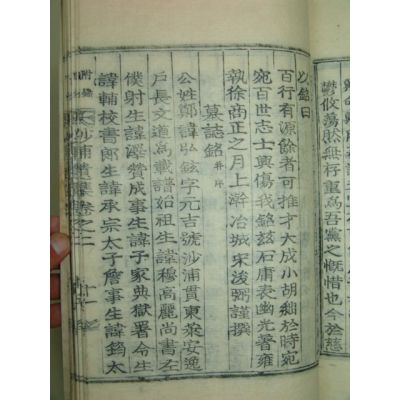 欝攸蕩然無存重爲吾黨之慨惜也今於慈
以銘曰
百行有源餘者可推才大成小胡細於時宛
宛百世志士興傷我銘玆石庸表幽光晉雍
執徐商正之月上澣冶城宋浚弼謹撰
墓誌銘 幷序
公姓鄭諱弘鉉字元吉號沙浦貫東萊安逸
戶長文道爲載譜始祖生諱穆高麗尚書左
僕射生諱澤贊成事生諱子家典獄署令生
諱輔校書郎生諱承宗太子詹事生諱筠太
沙浦遺集卷之二
附錄